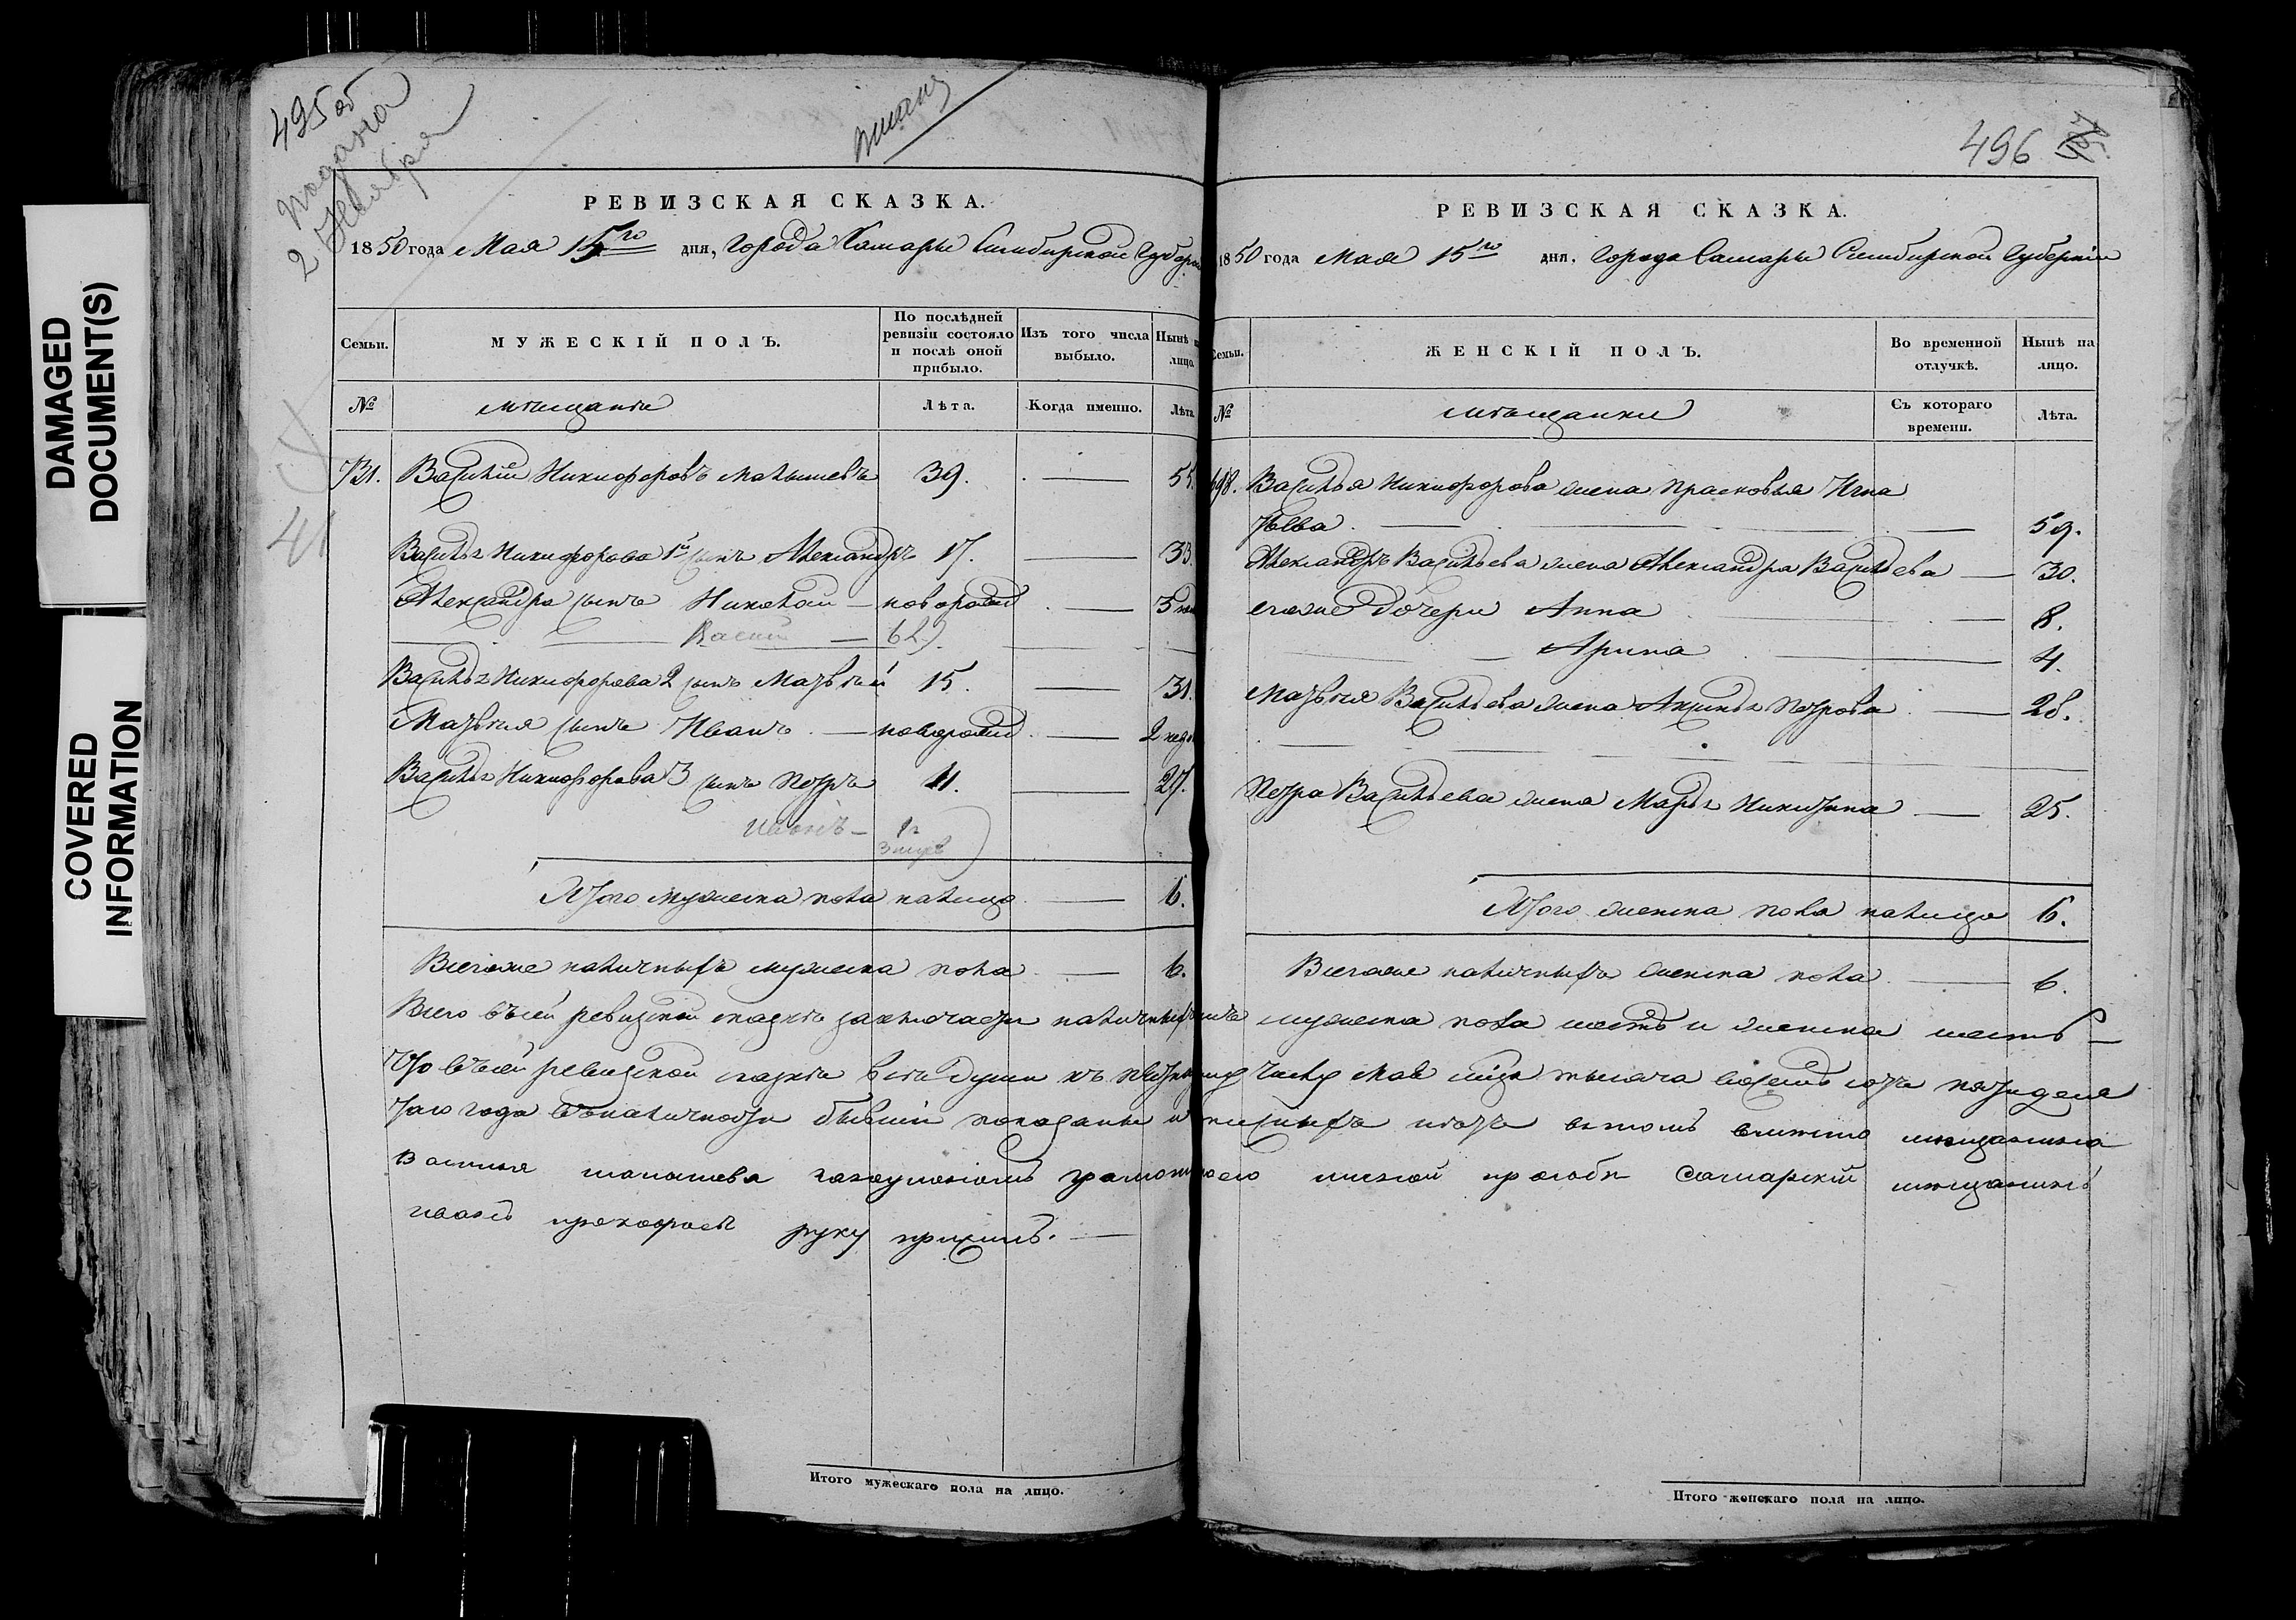 DAMAGED
DOCUMENT(S)
COVERED
INFORMATION
495 об
подана
2 Ноября
РЕВИЗСКАЯ СКАЗКА.
1850 года Мая 15го дня, Города Самары Симбирской Губерн
Семьи.
МУЖЕСКІЙ ПОЛЪ.
По послѣдней ревизіи состояло и послѣ оной прибыло.
Изъ того числа выбыло.
Нынѣ н лицо.
№
мѣщанѣ
Лѣта.
Когда именно.
Лѣта
731. Василій Никифоровъ Малышевъ 39. — 55.
Василья Никифорова 1й сынъ Александръ 17. — 33.
Александра сынъ Николай — новорожд — 5
Васили — 6 л.
Василья Никифорова 2 сынъ Матвѣй 15. — 31.
Матвѣя сынъ Иванъ — новорожд. — 2 нед
Василья Никифорова 3 сынъ Петръ 11. — 27.
Иванъ — 1 г
3 мцев
Итого мужеска пола налицо — 6.
Всегоже наличныхъ мужеска пола — 6.
496
РЕВИЗСКАЯ СКАЗКА.
1850 года Мая 15го дня. Города Самары Симбирской Губерніи
Семьи.
ЖЕНСКІЙ ПОЛЪ.
Во временной отлучкѣ.
Нынѣ на лицо.
№
мѣщанки
Съ котораго времени.
Лѣта.
698. Василья Никифорова жена Прасковья Игна
тьева. — 59.
Александръ Васильева жена Александра Васильева — 30.
егоже дочери Анна — 8.
Арина — 4.
Матвѣя Васильева жена Акулина Петрова — 28.
Петра Васильева жена Марья Никитина — 25.
Итого женска пола налицо 6.
Всегоже наличныхъ женска пола — 6.
Всего въсей ревизской сказкѣ заключается наличныхъ душъ мужеска пола шесть и женска шесть —
Что всѣей ревизской сказкѣ всѣ души къ пятнадц числу мая мца тысяча восемь сотъ пятидеся
таго года въналичности бывшіи показаны и писныхъ нѣтъ втомъ вмѣсто мещанина
Василья малышева занеумѣніемъ грамоты поего личной прозбе Самарскій мещанинъ
иванъ прохоровъ руку приложилъ. —
Итого мужескаго пола на лицо.
Итого женскаго пола на лицо.